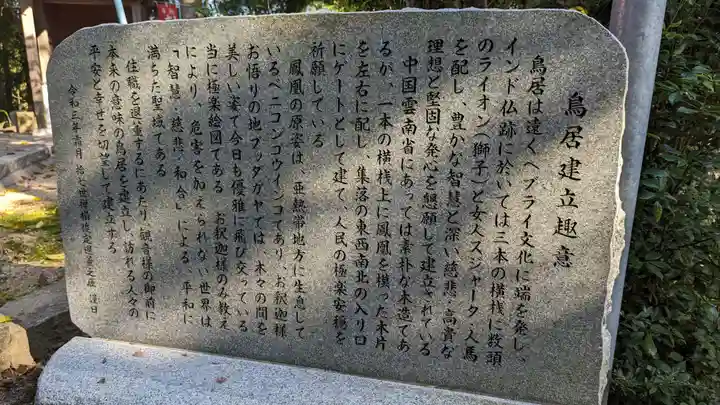 鳥居建立趣意
鳥居は遠くヘブライ文化に端を発し、
インド仏跡に於いては三本の横桟に数頭
のライオン(獅子)と女人スジャータ・人馬
を配し、豊かな智慧と深い慈悲・高貴な
理想と堅固な発心を懇願して建立されている
中国雲南省にあっては素朴な木造であ
るが、一本の横桟上に鳳凰を模った木片
を左右に配し、集落の東西南北の入り口
にゲートとして建て、人民の極楽安穏を
祈願している
鳳凰の原姿は、亜熱帯地方に生息して
いるベニコンゴウインコであり、お釈迦様
お悟りの地ブッダガヤでは、木々の間を
美しい姿で今日も優雅に飛び交っている
当に極楽絵図である お釈迦様のみ教え
により、危害を加えられない世界は
「智慧、慈悲、和合」による、平和に
満ちた聖域である
住職を退董するにあたり、観音様の御前に
本来の意味の鳥居を建立し、訪れる人々の
平安と幸せを切望して建立する
令和三年霜月 拾七世
之 謹白